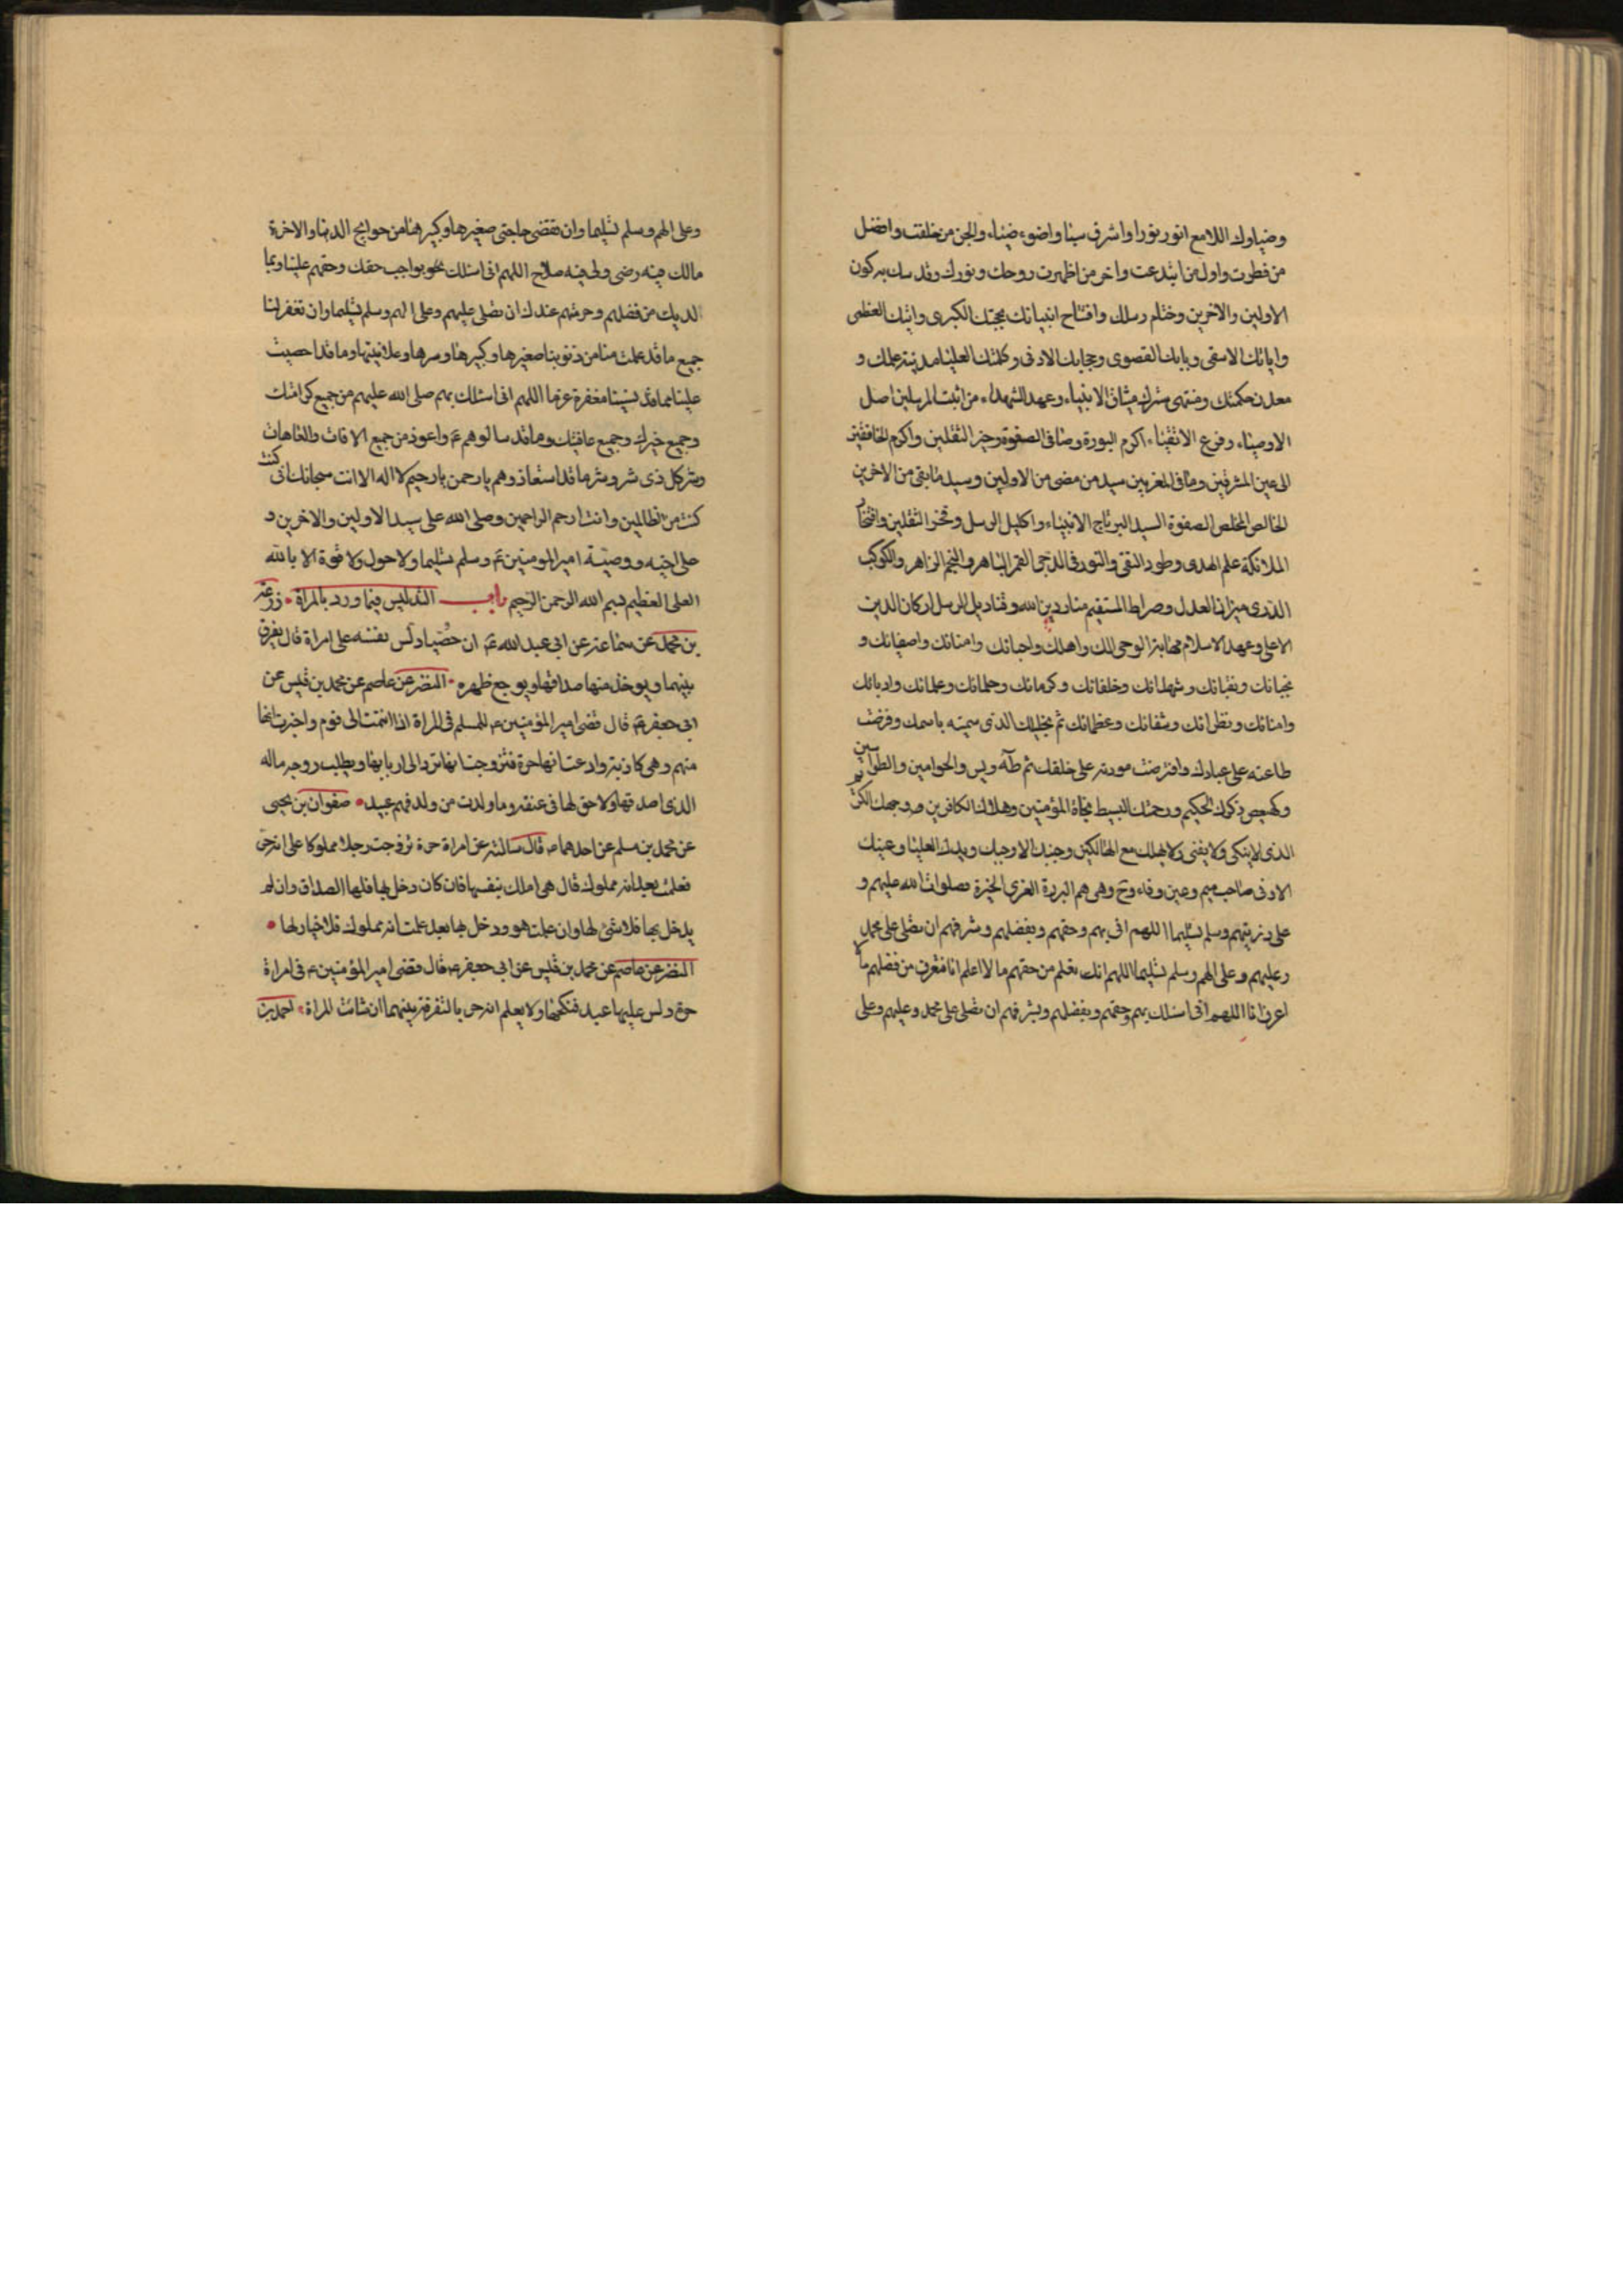 وضياوك اللامع انور نورا واشرق سنا واضوء ضياء والجن من خلقت وافضل
من فطرت واول من ابتدعت واخر من اظهرت روحك ونورك وقدسك به كون
الاولين والاخرين وختام رسلك وافتتاح انبيائك بحجتك الكبرى وايتك العظمى
واياتك الاسقى وبابك القصوى وحجابك الادنى وكلمتك العليا مدينة علمك و
معدن حكمتك ومنتهى سرك ميثاق الانبياء وعهد الشهداء من اثبت المرسلين اصل
الاوصياء وفرع الاتقياء اكرم البررة وصافى الصفوة وخير الثقلين واكرم الخافقين
الى عين المشرقين وصافى المغربين سيد من مضى من الاولين وسيد ما بقى من الاخرين
الخالص المخلص الصفوة السيد البر تاج الانبياء واكليل الرسل وفخر الثقلين وافتخار
الملائكة علم الهدى وطود التقى والنور فى الدجى القمر الباهر والنجم الزاهر والكوكب
الدرى ميزان العدل وصراط المستقيم منار دين الله وقناديل الرسل اركان الدين
الاعلى وعهد الاسلام الوحى لك واهلك واحبائك وامنائك واصفيائك و
نجبائك ونقبائك وشهدائك وخلفائك وكرمائك وحلمائك وعلمائك وادبائك
وامنائك ونظرائك وشفائك وعظمائك ثم نجليك الذى سميته باسمك وفرضت
طاعته على عبادك وافترضت مودته على خلقك ثم طه ويس والحوامين والطواسين
وكهيعص ذكرك الحكيم ورحمتك البسيط نجاة المؤمنين وهلاك الكافرين ووجهك الكريم
الذى لا يفنى ولا يهلك مع الهالكين وجنبك الاوجب ويدك العليا وعينك
الادنى صاحب ميم وعين وفاء وح وهى هم البررة الغرى الخيرة صلوات الله عليهم و
على ذريتهم وسلم تسليما اللهم انى بهم وحقهم وبفضلهم وشرفهم ان تصلى على محمد
وعليهم وعلى الهم وسلم تسليما اللهم انك تعلم من حقهم ما لا اعلم انا فتعرف من فضلهم ما لا
اعرف انا اللهم انى اسئلك بهم وحقهم وبفضلهم وبشرفهم ان تصلى على محمد وعليهم وعلى
وعلى الهم وسلم تسليما وان تقضى حاجتى صغيرها وكبيرها من حوائج الدنيا والاخرة
مالك فيه رضى ولى فيه صلاح اللهم انى اسئلك بحق بواجب حقك وحقهم علينا وبما
لديك من فضلهم وحرمتهم عندك ان تصلى عليهم وعلى الهم وسلم تسليما وان تغفر لنا
جميع ما قد علمت منا من ذنوبنا صغيرها وكبيرها وسرها وعلانيتها وما قد احصيت
علينا مما قد نسيتنا مغفرة عزما اللهم انى اسئلك بهم صلى الله عليهم من جميع كرامتك
وجميع خيرك وجميع عافيتك وما قد سالوهم ع واعوذ من جميع الافات والعاهات
وشر كل ذى شر وشر ما قد استعاذوهم يا رحمن يا رحيم لا اله الا انت سبحانك انى كنت
كنت من الظالمين وانت ارحم الراحمين وصلى الله على سيد الاولين والاخرين و
على اخيه ووصيه امير المومنين ع وسلم تسليما ولا حول ولا قوة الا بالله
العلى العظيم بسم الله الرحمن الرحيم باب التدليس فيما ورد بالمراة زرعة
بن محمد عن سماعة عن ابى عبد الله ع ان خصيا دلس نفسه على امراة قال يفرق
بينهما ويوخذ منها صداقها ويوجع ظهره النضر عن عاصم عن محمد بن قيس عن
ابى جعفر ع قال قضى امير المؤمنين ع للمسلم فى المراة اذا انتمت الى قوم واخبرت انها
منهم وهى كاذبة وادعت انها حرة فتزوجت انها ترد الى اربابها ويطلب زوجه ماله
الذى اصدقها ولا حق لها فى عنقه وما ولدت من ولد فهم عبيد صفوان بن يحيى
عن محمد بن مسلم عن احدهما ع قال سالته عن امراة حرة تزوجت رجلا مملوكا على انه حر
فعلمت بعد انه مملوك قال هى املك بنفسها فان كان دخل بها فلها الصداق وان لم
يدخل بها فلا شئ لها وان علمت هو ودخل بها بعد علمت انه مملوك فلا خيار لها
النضر عن عاصم عن محمد بن قيس عن ابى جعفر ع قال قضى امير المؤمنين ع فى امراة
حرة دلس عليها عبد فنكحها ولا يعلم انه حر بالتفرقة بينهما ان شائت المراة احمد بن